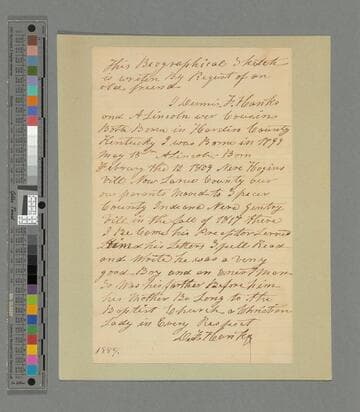 This Beographical Sketch
is writen By Request of an
old friend
I Dennis F. Hanks
and A Lincoln wer Cousins
Both Born in Hardin County
Kentucky I was Borne in 1799
May 15th A Lincoln Born
Februry the 12 1809 Nere Hogins
vill Now Larue County our
parants Moved to Specer
County Indiana Nere Gentry
vill in the fall of 1817 there
I Be Came his Preceptor Lerned
him his Letters Spell Read
and Write he was a very
good Boy and an onest Man
So Was his farther Before him
his Mother Be Long to the
Baptist Church a Christian
Lady in Every Respect
D. F. Hanks
1889.